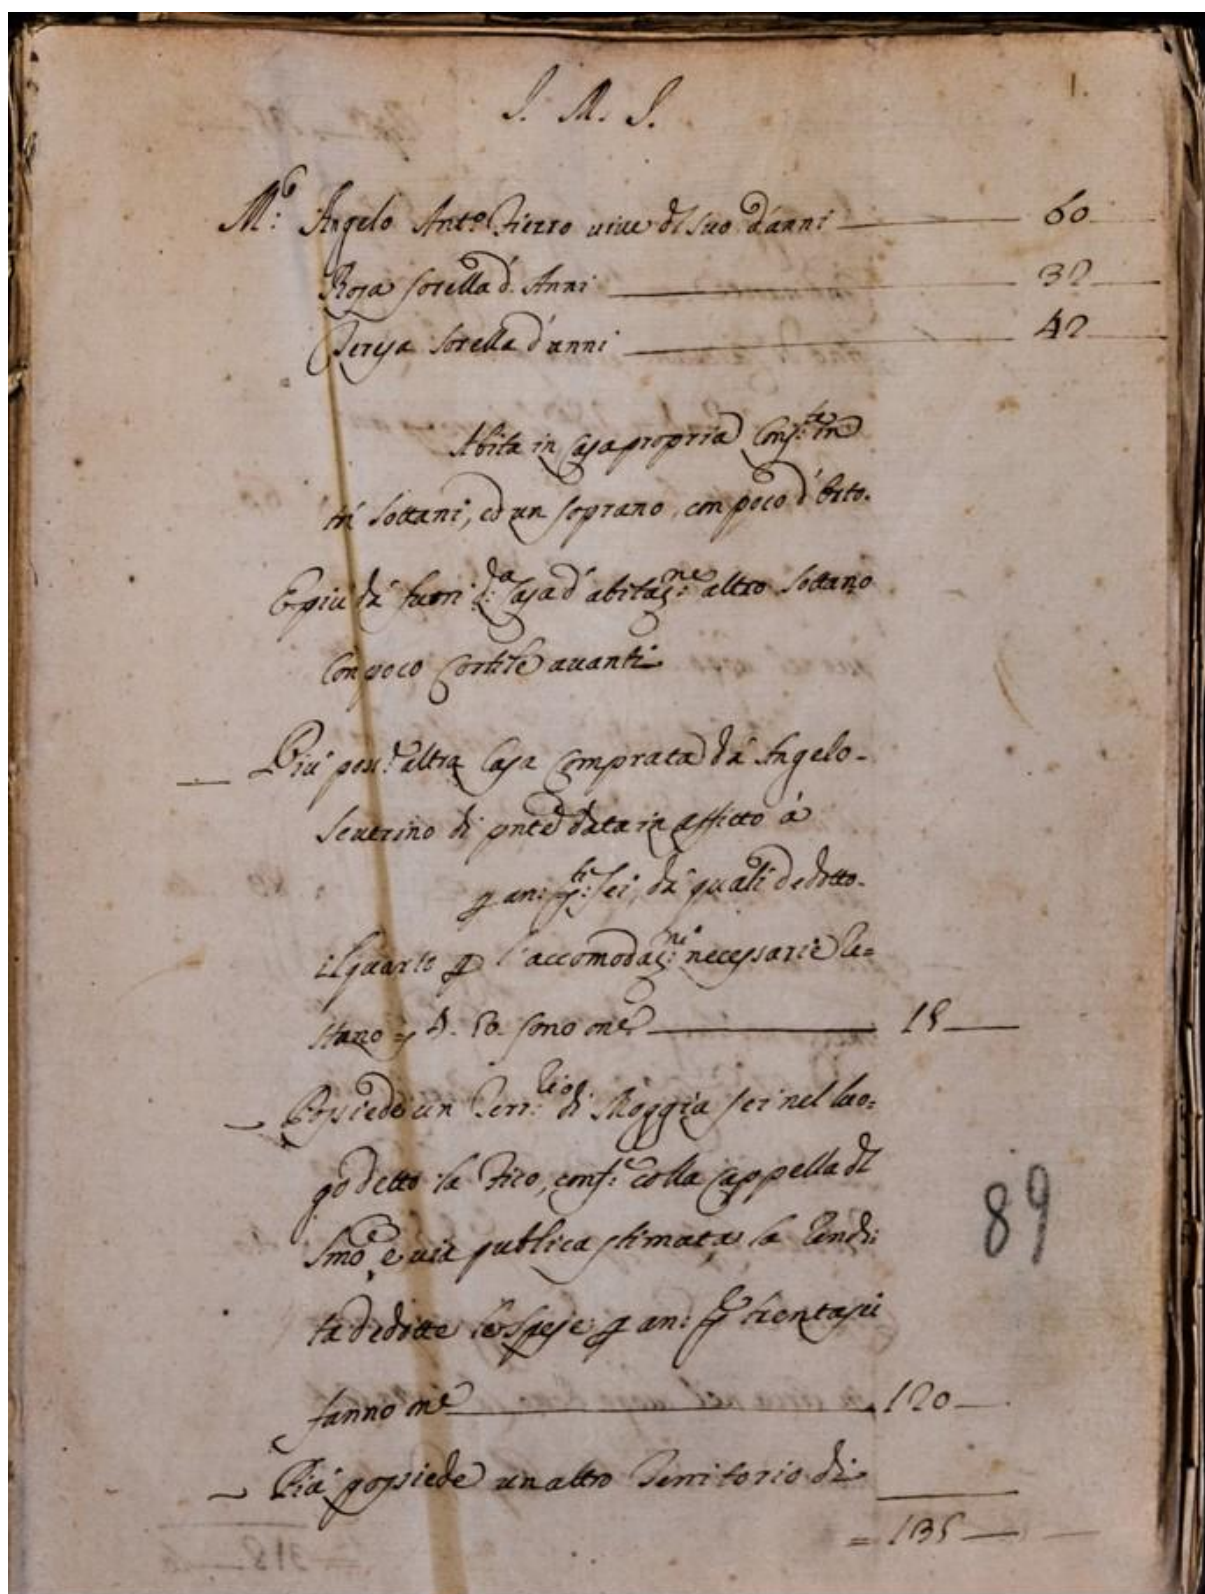 1.
J. M. J.
M.co Angelo Ant.o Fierro vive del suo d'anni 60
Rosa sorella d'Anni 32
Teresa sorella d'anni 42
Abita in Casa propria Cons.te in
tri sottani, ed un soprano, con poco d'orto.
E più da fuori d.a Casa d'abitaz.ne altro sottano
Con poco Cortile avanti
Più possi.e altra Casa Comprata da Angelo
Severino di pnte data in affitto à
p an: d.ti sei, da quali dedotto
il quarto p l'accomodaz.ni necessarie re=
stano = 4. 50. sono onc.e 15
Possiede un Terr.rio di Moggia sei nel luo=
go detto la Fico, conf.e colla Cappella del
SSmo, e via publica stimata la rendi:
ta dedotte le spese p an: d.ti trentasei
fanno onc.e 120
Più possiede un altro Territorio di
= 135
89